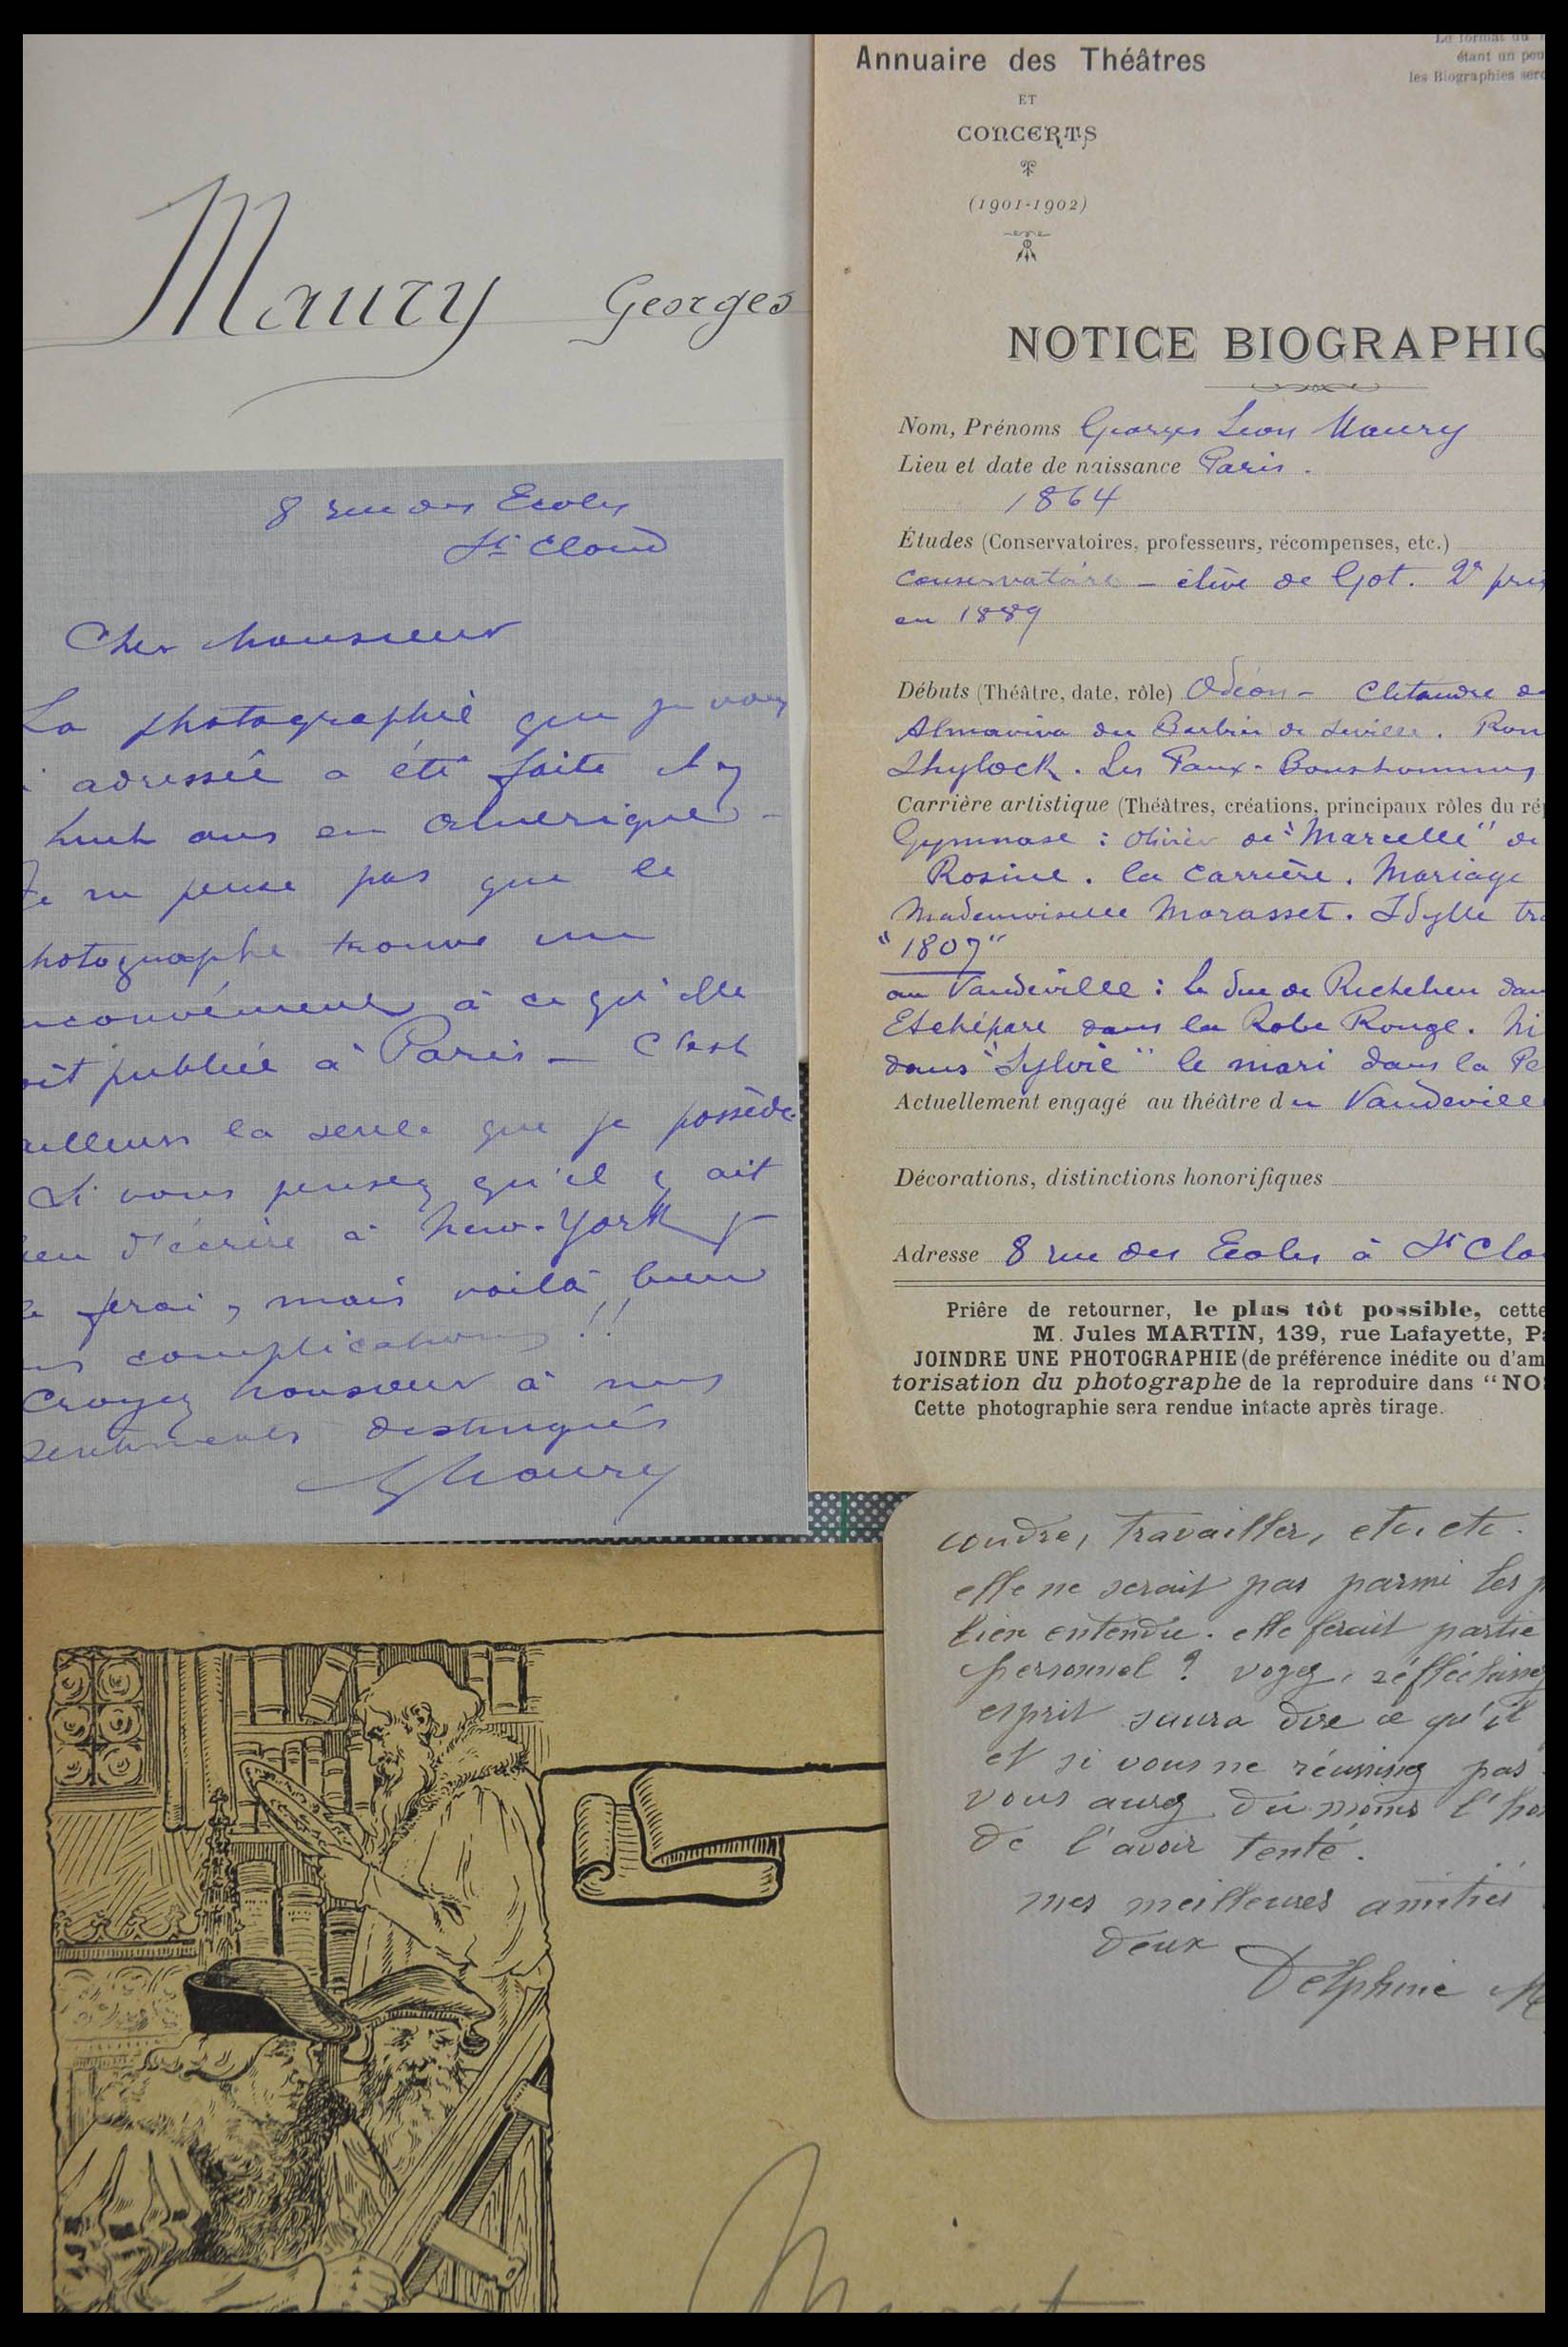 Maury Georges
8 rue des Ecoles
St Cloud
Cher Monsieur
La photographie que je vous
ai adressée a été faite il y
huit ans en Amérique -
Je ne pense pas que le
hotographe trouve un
nconvénient à ce qu'elle
oit publiée à Paris — C'est
ailleurs la seule que je possède
Si vous pensez qu'il y ait
ieu d'écrire à New-York je
le ferai, mais voilà bien
es complications !!
Croyez Monsieur à mes
sentiments distingués
GMaury
Le format du
étant un peu
les Biographies sero
Annuaire des Théâtres
ET
CONCERTS
(1901-1902)
NOTICE BIOGRAPHIQ
Nom, Prénoms Georges Leon Maury
Lieu et date de naissance Paris.
1864
Études (Conservatoires, professeurs, récompenses, etc.)
Conservatoire — élève de Got. 2e prix
en 1889
Débuts (Théâtre, date, rôle) Odéon — Clitandre de
Almaviva du Barbier de Séville. Rom
Shylock. Les Faux-Bonshommes
Carrière artistique (Théâtres, créations, principaux rôles du rép
Gymnase : Olivier de "Marcelle" de
Rosine. la Carrière. Mariage
Mademoiselle Morasset. Idylle tra
"1807"
au Vaudeville : le duc de Richelieu dan
Etchépare dans la Robe Rouge. Ni
dans "Sylvie" le mari dans la Pe
Actuellement engagé au théâtre du Vaudeville
Décorations, distinctions honorifiques
Adresse 8 rue des Ecoles à St Clo
Prière de retourner, le plus tôt possible, cette
M. Jules MARTIN, 139, rue Lafayette, Pa
JOINDRE UNE PHOTOGRAPHIE (de préférence inédite ou d'am
torisation du photographe de la reproduire dans "NO
Cette photographie sera rendue intacte après tirage.
coudre, travailler, etc. etc.
elle ne serait pas parmi les p
bien entendu. elle ferait partie
personnel ? voyez, réfléchissez
esprit saura dire ce qu'il
et si vous ne réussissez pas
vous aurez du moins l'ho
de l'avoir tenté.
mes meilleures amitiés
deux
Delphine M
Murat